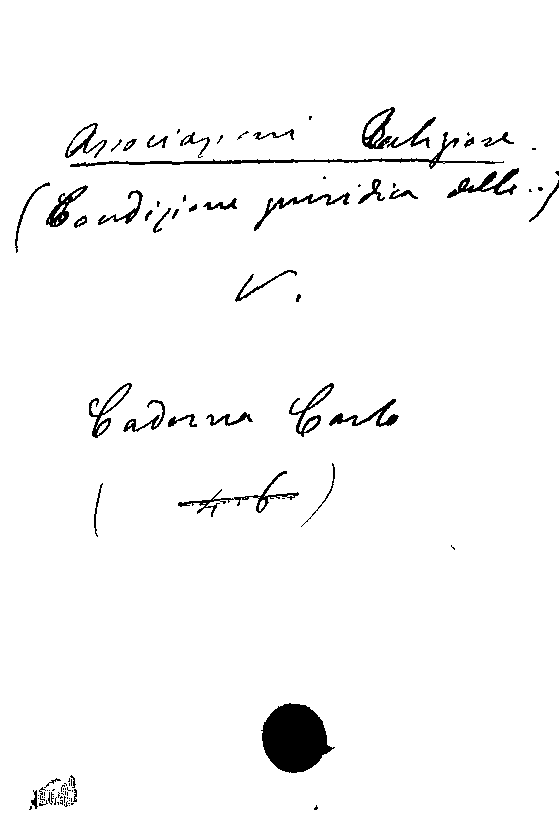 Associazioni Religiose.
(Condizione giuridica delle..)
V.
Cadorna Carlo
( 4.6 )